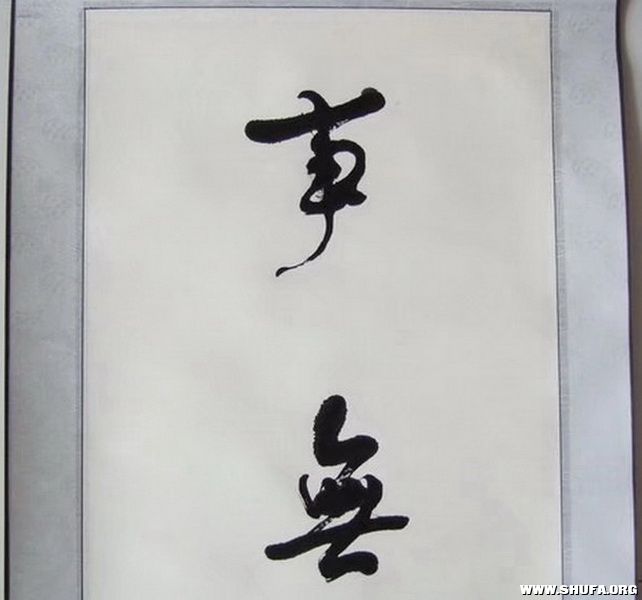 事
無
WWW.SHUFA.ORG